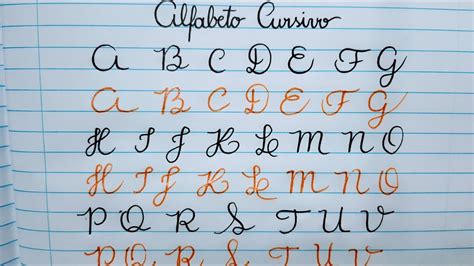 Alfabeto Cursivo
A B C D E F G
A B C D E F G
H I J K L M N O
H I J K L M N O
P Q R S T U V
P Q R S T U V